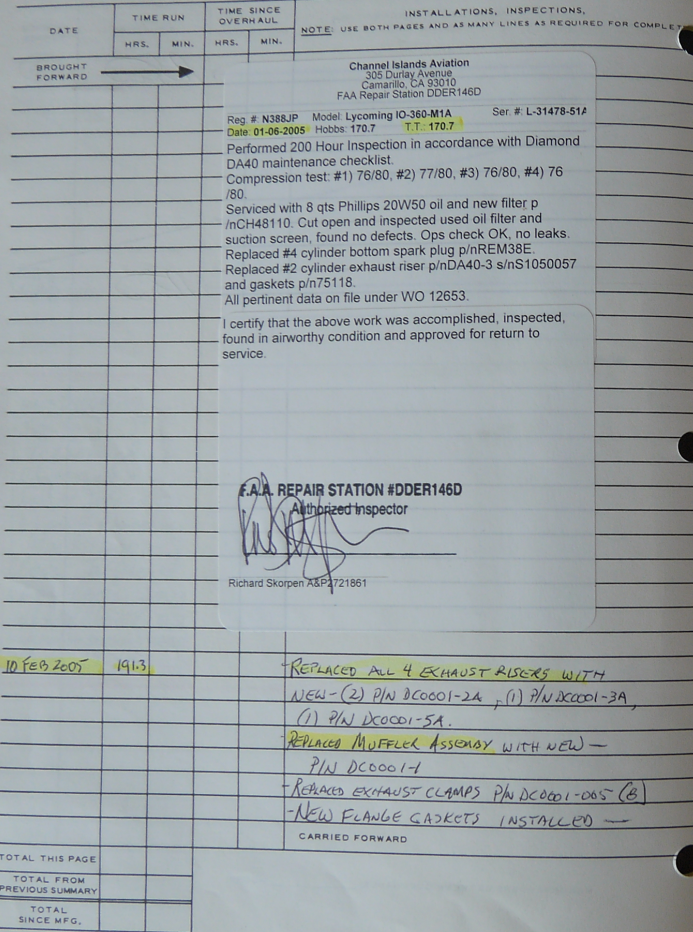 DATE
TIME RUN
TIME SINCE
OVERHAUL
INSTALLATIONS, INSPECTIONS,
NOTE: USE BOTH PAGES AND AS MANY LINES AS REQUIRED FOR
HRS. MIN. HRS. MIN.
BROUGHT
FORWARD
Channel Islands Aviation
305 Durlay Avenue
Camarillo, CA 93010
FAA Repair Station DDER146D
Reg. #: N388JP Model: Lycoming IO-360-M1A Ser. #: L-31478-51A
Date: 01-06-2005 Hobbs: 170.7 T.T.: 170.7
Performed 200 Hour Inspection in accordance with Diamond
DA40 maintenance checklist.
Compression test: #1) 76/80, #2) 77/80, #3) 76/80, #4) 76
/80.
Serviced with 8 qts Phillips 20W50 oil and new filter p
/nCH48110. Cut open and inspected used oil filter and
suction screen, found no defects. Ops check OK, no leaks.
Replaced #4 cylinder bottom spark plug p/nREM38E.
Replaced #2 cylinder exhaust riser p/nDA40-3 s/nS1050057
and gaskets p/n75118.
All pertinent data on file under WO 12653.
I certify that the above work was accomplished, inspected,
found in airworthy condition and approved for return to
service.
F.A.A. REPAIR STATION #DDER146D
Authorized Inspector
Richard Skorpen A&P2721861
10 FEB 2005 191.3 -REPLACED ALL 4 EXHAUST RISERS WITH
NEW-(2) P/N DC0001-2A, (1) P/N DC0001-3A,
(1) P/N DC0001-5A.
-REPLACED MUFFLER ASSEMBY WITH NEW —
P/N DC0001-1
-REPLACED EXHAUST CLAMPS P/N DC0001-005 (8)
-NEW FLANGE GASKETS INSTALLED —
CARRIED FORWARD
TOTAL THIS PAGE
TOTAL FROM
PREVIOUS SUMMARY
TOTAL
SINCE MFG.